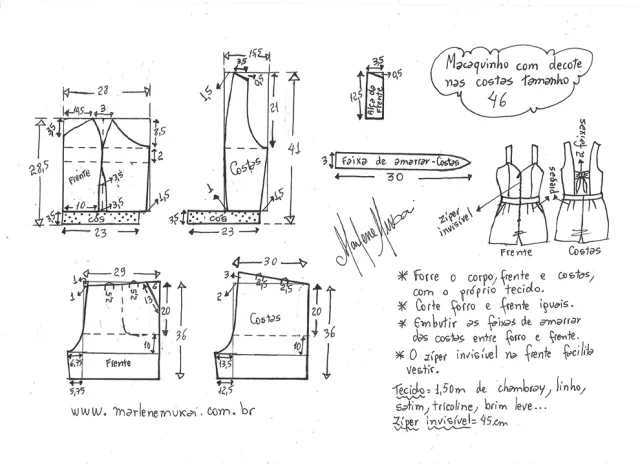 Macaquinho com decote
nas costas tamanho
46
28
14,5
3
3,5
8,5
2
28,5
Frente
3,5
10
3,5
1,5
3,5
cós
23
3,5
1,5
0,5
21
41
Costas
1
1,5
3,5
cós
23
3,5
0,5
12,5
Alça da
Frente
3
Faixa de amarrar-Costas
30
2 faixas
pregas
zíper
invisível
Frente
Costas
Marlene Mukai
29
1
1
2,5
2,5
20
36
10
6,75
Frente
5,75
30
3
2
Costas
20
36
10
13,5
12,5
* Forre o corpo, frente e costas,
com o próprio tecido.
* Corte forro e frente iguais.
* Embutir as faixas de amarrar
das costas entre forro e frente.
* O zíper invisível na frente facilita
vestir.
Tecido = 1,50m de chambray, linho,
satim, tricoline, brim leve...
Zíper invisível = 45cm
www.marlenemukai.com.br